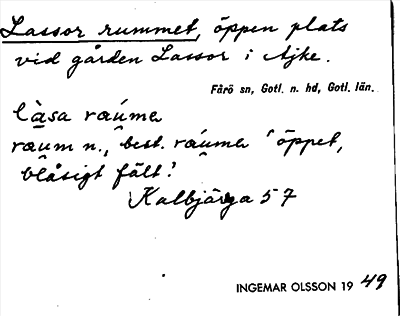 Lassor rummet, öppen plats
vid gården Lassor i Ajke.
Fårö sn, Gotl. n. hd, Gotl. län.
làsa ráuma
raum n., best. ráuma 'öppet,
blåsigt fält'.
Kalbjärga 57
INGEMAR OLSSON 19 49